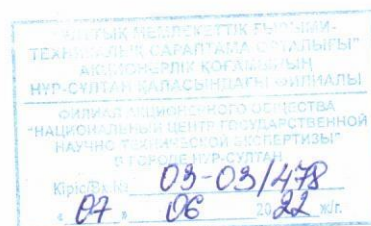 "ҰЛТТЫҚ МЕМЛЕКЕТТІК ҒЫЛЫМИ-
ТЕХНИКАЛЫҚ САРАПТАМА ОРТАЛЫҒЫ"
АКЦИОНЕРЛІК ҚОҒАМЫНЫҢ
НҰР-СҰЛТАН ҚАЛАСЫНДАҒЫ ФИЛИАЛЫ
ФИЛИАЛ АКЦИОНЕРНОГО ОБЩЕСТВА
"НАЦИОНАЛЬНЫЙ ЦЕНТР ГОСУДАРСТВЕННОЙ
НАУЧНО-ТЕХНИЧЕСКОЙ ЭКСПЕРТИЗЫ"
В ГОРОДЕ НУР-СУЛТАН
Кіріс/Вх.№ 03-03/478
« 07 » 06 2022 ж/г.